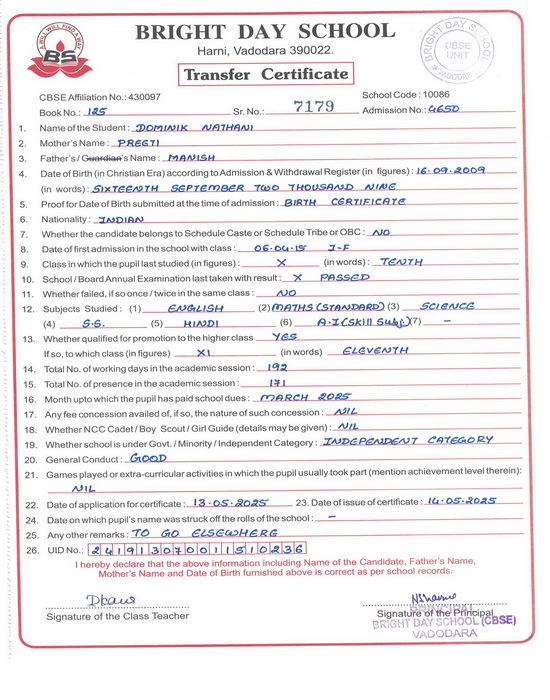 A WILL WILL FIND A WAY
BS
BRIGHT DAY SCHOOL
Harni, Vadodara 390022.
Transfer Certificate
BRIGHT DAY SCHOOL
CBSE
UNIT
VADODARA
CBSE Affiliation No.: 430097 School Code : 10086
Book No.: 125 Sr. No.: 7179 Admission No.: 4650
1. Name of the Student : DOMINIK NATHANI
2. Mother's Name : PREETI
3. Father's / Guardian's Name : MANISH
4. Date of Birth (in Christian Era) according to Admission & Withdrawal Register (in figures) : 16.09.2009
(in words) : SIXTEENTH SEPTEMBER TWO THOUSAND NINE
5. Proof for Date of Birth submitted at the time of admission : BIRTH CERTIFICATE
6. Nationality : INDIAN
7. Whether the candidate belongs to Schedule Caste or Schedule Tribe or OBC : NO
8. Date of first admission in the school with class : 06.04.15 I-F
9. Class in which the pupil last studied (in figures) : X (in words) : TENTH
10. School / Board Annual Examination last taken with result : X PASSED
11. Whether failed, if so once / twice in the same class : NO
12. Subjects Studied : (1) ENGLISH (2) MATHS (STANDARD) (3) SCIENCE
(4) S.S. (5) HINDI (6) A.I (Skill Subj.) (7) –
13. Whether qualified for promotion to the higher class YES
If so, to which class (in figures) XI (in words) ELEVENTH
14. Total No. of working days in the academic session : 192
15. Total No. of presence in the academic session : 171
16. Month upto which the pupil has paid school dues : MARCH 2025
17. Any fee concession availed of, if so, the nature of such concession : NIL
18. Whether NCC Cadet / Boy Scout / Girl Guide (details may be given) : NIL
19. Whether school is under Govt. / Minority / Independent Category : INDEPENDENT CATEGORY
20. General Conduct : GOOD
21. Games played or extra-curricular activities in which the pupil usually took part (mention achievement level therein) :
NIL
22. Date of application for certificate : 13.05.2025 23. Date of issue of certificate : 14.05.2025
24. Date on which pupil's name was struck off the rolls of the school : –
25. Any other remarks : TO GO ELSEWHERE
26. UID No.: 241913070011510236
I hereby declare that the above information including Name of the Candidate, Father's Name,
Mother's Name and Date of Birth furnished above is correct as per school records.
Signature of the Class Teacher Signature of the Principal
PRINCIPAL
BRIGHT DAY SCHOOL (CBSE)
VADODARA